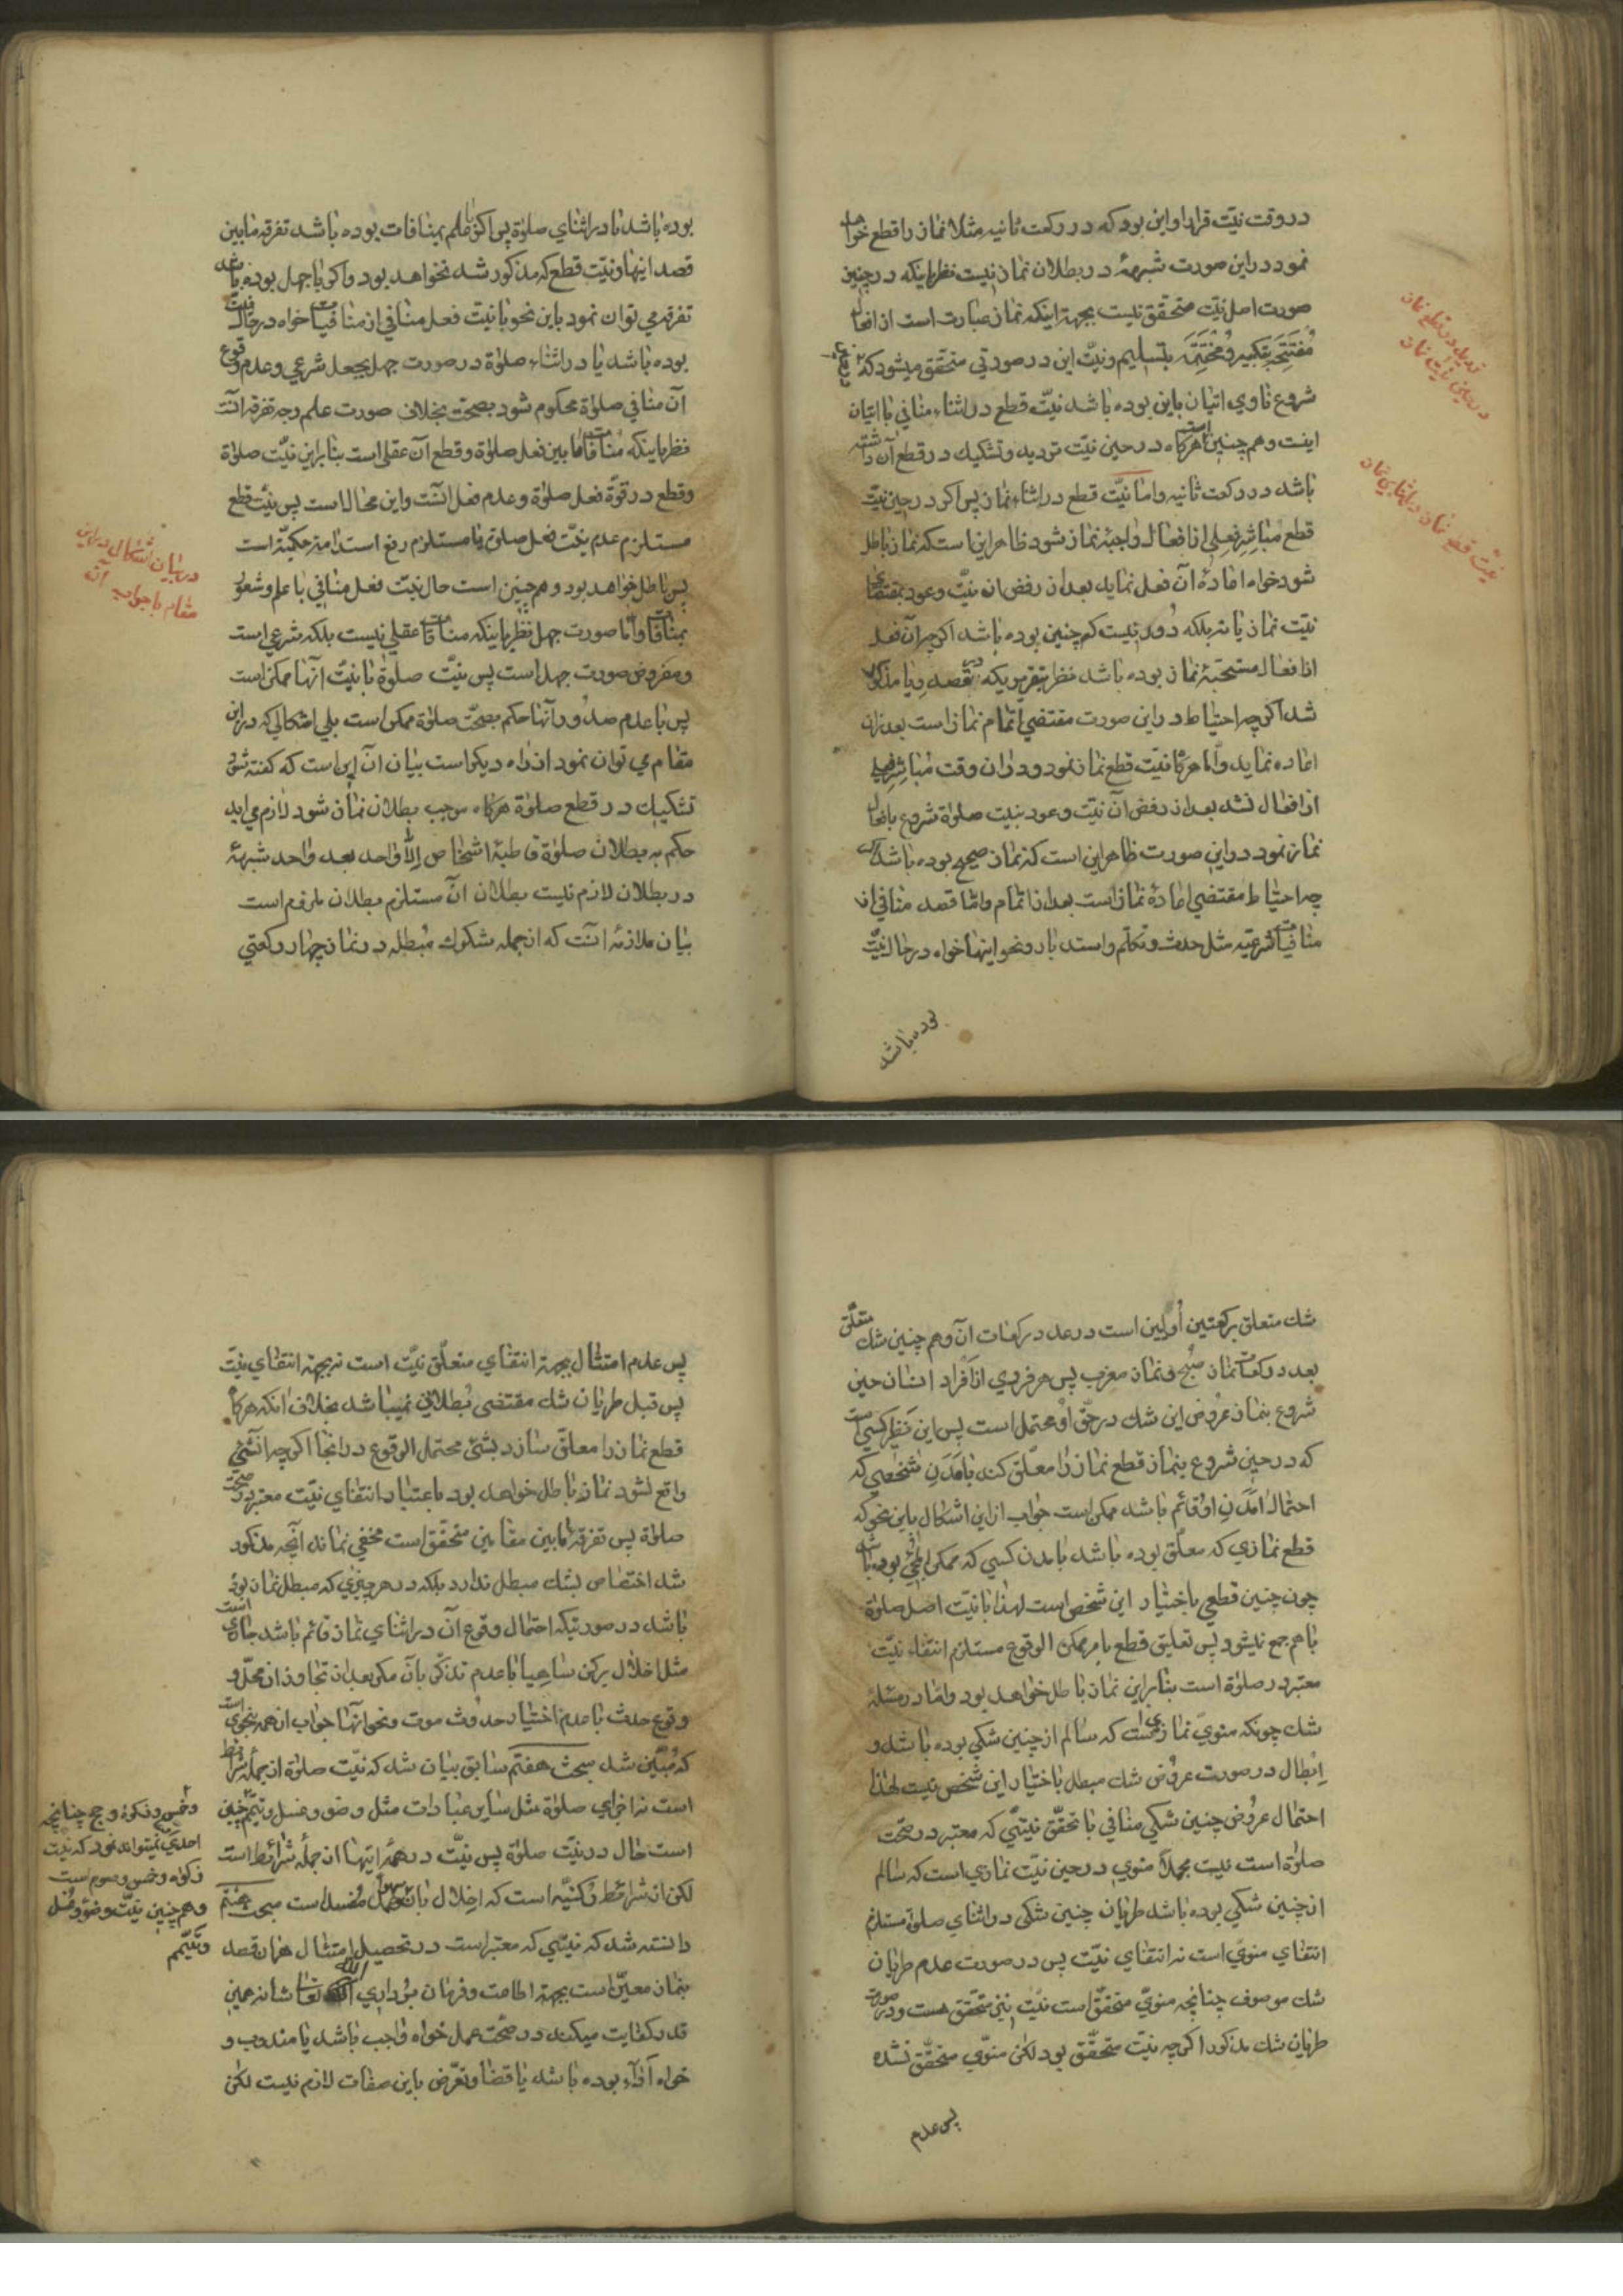 در وقت نیّت قرار او این بود که در رکعت ثانیه مثلا نماز را قطع خواهد
نمود در این صورت شبههٔ در بطلان نماز نیست نظر باینکه در چنین
صورت اصل نیّت متحقق نیست بجهة اینکه نماز عبارت است از افعال
مُفتَتِحَه بتکبیر و مُختَتِمَه بتسلیم و نیّت این در صورتی متحقّق میشود که
شروع ناوی اتیان باین بوده باشد نیّت قطع در اثناء منافی با اتیان
اینست و هم چنین است هرکاه در حین نیّت تردید و تشکیک در قطع آن داشته
باشد در رکعت ثانیه و امّا نیّت قطع در اثناء نماز پس اکر در حین نیّت
قطع مُباشِرِ فعلی از افعال واجبهٔ نماز شود ظاهر این است که نماز باطل
شود خواه اعادهٔ آن فعل نماید بعد از رفض ان نیّت و عود بمقتضای
نیّت نماز یا نه بلکه دُور نیست که چنین بوده باشد اکرچه آن فعل
از افعال مستحبّهٔ نماز بوده باشد نظر بتقریریکه در قصد ریا مذکور
شد اکرچه احتیاط در این صورت مقتضی اتمام نماز است بعد از ان
اعاده نماید و امّا هرکاه نیّت قطع نماز نمود و در ان وقت مُباشِرِ فعلی
از افعال نشد بعد از رفض آن نیّت و عود بنیّت صلوٰة شروع بافعال
نماز نمود در این صورت ظاهر این است که نماز صحیح بوده باشد اکر
چه احتیاط مقتضی اعادهٔ نماز است بعد از اتمام و امّا قصد منافی از
منافیات شرعیّه مثل حدث و تکلّم و استدبار و نحو اینها خواه در حال نیّت
بوده باشد
تردید در قطع نماز
در حین نیّت نماز
نیّت قطع نماز در اثنای نماز
بوده باشد یا در اثنای صلوٰة پس اکر با علم بمنافات بوده باشد تفرقه مابین
قصد اینها و نیّت قطع که مذکور شد نخواهد بود و اکر با جهل بوده باشد
تفرقه می توان نمود باین نحو با نیّت فعل منافی از منافیات خواه در حال نیّت
بوده باشد یا در اثناء صلوٰة در صورت جهل بجعل شرعی و عدم وقوع
آن منافی صلوٰة محکوم شود بصحت بخلاف صورت علم وجه تفرقه آنست
نظر باینکه منافات مابین فعل صلوٰة و قطع آن عقلی است بنابراین نیّت صلاة
و قطع در قوّه فعل صلوٰة و عدم فعل آنست و این محال است پس نیّت قطع
مستلزم عدم نیّت فعل صلوٰة یا مستلزم رفع استدامهٔ حکمیّه است
پس باطل خواهد بود و هم چنین است حال نیّت فعل منافی با علم و شعور
بمنافات و امّا صورت جهل نظر باینکه منافات عقلی نیست بلکه شرعی است
و مفروض صورت جهل است پس نیّت صلوٰة با نیّت آنها ممکن است
پس با عدم صدور آنها حکم بصحّت صلوٰة ممکن است بلی اشکالی که در این
مقام می توان نمود از راه دیکر است بیان آن این است که کفته شود
تشکیک در قطع صلوٰة هرکاه موجب بطلان نماز شود لازم می اید
حکم به بطلان صلوٰة قاطبهٔ اشخاص الّا واحد بعد واحد شبههٔ
در بطلان لازم نیست بطلان آن مستلزم بطلان ملزوم است
بیان ملازمه آنست که از جمله شکوک مُبطله در نماز چهار رکعتی
در بیان اشکال در این
مقام با جواب ان
شك متعلق برکعتین اُولَیین است در عدد رکعات آن و هم چنین شك متعلّق
بعدد رکعات نماز صُبح و نماز مغرب پس هر فردی از اَفراد انسان حین
شروع بنماز عُروض این شك در حقّ او محتمل است پس این نظیر کسی است
که در حین شروع بنماز قطع نماز را معلّق کند بآمَدَنِ شخصی که
احتمال امدَنِ او قائم باشد ممکن است جواب از این اشکال باین نحو که
قطع نمازی که معلّق بوده باشد بامدن کسی که ممکن المجیٔ بوده باشد
چون چنین قطعی باختیار این شخص است لهذا با نیّت اصل صلوٰة
با هم جمع نمیشود پس تعلیق قطع بامر ممکن الوقوع مستلزم انتفاء نیّت
معتبر در صلوٰة است بنابراین نماز باطل خواهد بود و امّا در مسئلهٔ
شك چونکه منویّ نمازی است که سالم از چنین شکی بوده باشد و
اِبطال در صورت عروُض شك مبطل باختیار این شخص نیست لهٰذا
احتمال عروُض چنین شکی منافی با تحقّق نیّتی که معتبر در صحّت
صلوٰة است نیست مجملاً منوی در حین نیّت نمازی است که سالم
از چنین شکی بوده باشد طریان چنین شکی در اثنای صلوٰة مستلزم
انتفای منویّ است نه انتفای نیّت پس در صورت عدم طریان
شك موصوف چنانچه منویّ متحقّق است نیّت نیز متحقّق هست و در صورت
طریان شك مذکور اکرچه نیّت متحقّق بود لکن منویّ متحقّق نشده
پس عدم
پس عدم امتثال بجهة انتفای متعلّق نیّت است نه بجهة انتفای نیّت
پس قبل طریان شك مقتضی بُطلانی نمیباشد بخلاف انکه هرکاه
قطع نماز را معلّق سازد بشئ محتمل الوقوع در انجا اکرچه آنشئ
واقع نشود نماز باطل خواهد بود باعتبار انتفای نیّت معتبره در صحّت
صلوٰة پس تفرقه مابین مقامین متحقّق است مخفی نماند آنچه مذکور
شد اختصاص بشك مبطل ندارد بلکه در هر چیزی که مبطل نماز بوده
باشد در صورتیکه احتمال وقوع آن در اثنای نماز قائم باشد جاری است
مثل اخلال برکن ساهیاً با عدم تذکّر بآن مکر بعد از تجاوز از محلّ و
وقوع حدث با عدم اختیار حدوُث موت و نحو آنها جواب از همه بنحوی است
که مُبیّن شد مبحث هفتم سابق بیان شد که نیّت صلوٰة از جملهٔ شرائط
است نه اجزای صلوٰة مثل سایر عبادات مثل وضو و غسل و تیمّم چنین
است حال در نیّت صلوٰة پس نیّت در همهٔ اینها از جملهٔ شرائط است
لکن از شرائط رُکنیّه است که اِخلال بان مُفسد است مبحث هشتم
دانسته شد که نیّتی که معتبر است در تحصیل امتثال همان قصد
بنماز معیّن است بجهة اطاعت و فرمان بُرداری الله تعالی شانه همین
قدر کفایت میکند در صحّت عمل خواه واجب باشد یا مندوب و
خواه اَداء بوده باشد یا قضا و تعرّض باین صفات لازم نیست لکن
و خمس و زکوة و حج چنانچه
احدی نمیتواند نمود که نیّت
زکوٰة و خمس و صوم است
و هم چنین نیّت وضو و غسل
و تیمّم